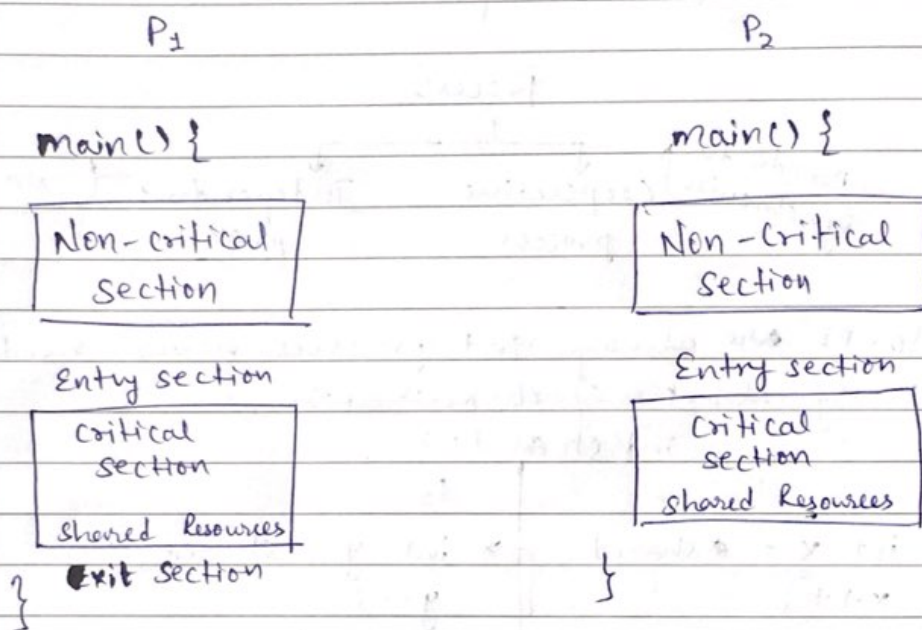 P1
main() {
Non-critical
section
Entry section
critical
section
shared Resources
Exit section
}
P2
main() {
Non-Critical
Section
Entry section
Critical
section
Shared Resources
}